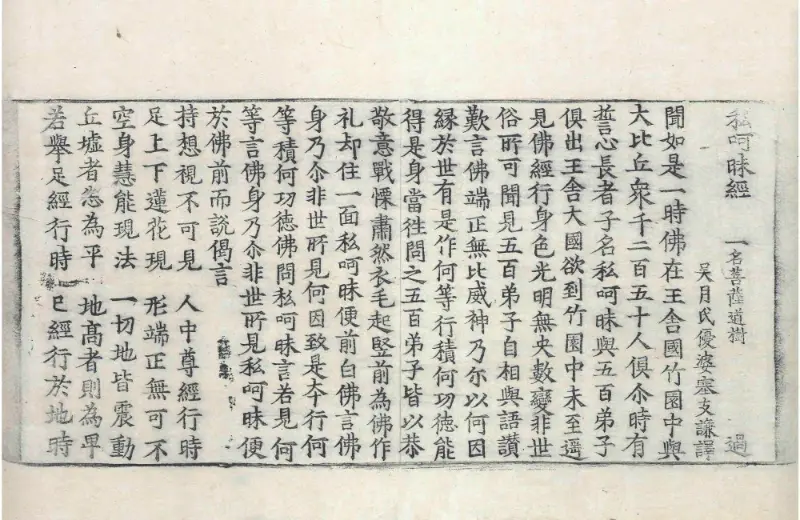 私呵昧經 一名菩薩道樹 過
吳月氏優婆塞支謙譯
聞如是一時佛在王舍國竹園中與
大比丘衆千二百五十人俱尒時有
誓心長者子名私呵昧與五百弟子
俱出王舍大國欲到竹園中未至遥
見佛經行身色光明無央數變非世
俗所可聞見五百弟子自相與語讃
歎言佛端正無比威神乃尒以何因
縁於世有是作何等行積何功徳能
得是身當往問之五百弟子皆以恭
敬意戰慄肅然衣毛起竪前為佛作
礼却住一面私呵昧便前白佛言佛
身乃尒非世所見何因致是夲行何
等積何功徳佛問私呵昧言若見何
等言佛身乃尒非世所見私呵昧便
於佛前而說偈言
持想視不可見 人中尊經行時
足上下蓮花現 形端正無可不
空身慧能現法 一切地皆震動
丘墟者忩為平 地髙者則為卑
若舉足經行時 已經行於地時